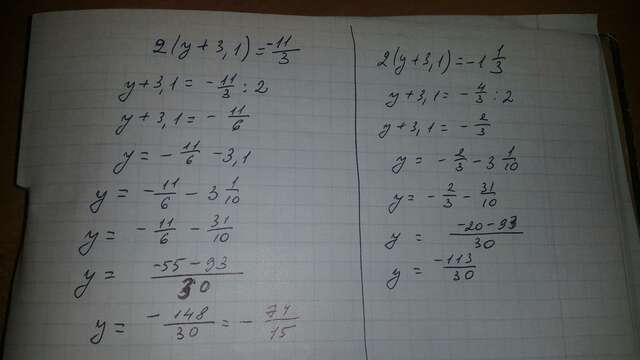 2(y + 3,1) = -11/3
y + 3,1 = - 11/3 : 2
y + 3,1 = - 11/6
y = - 11/6 - 3,1
y = - 11/6 - 3 1/10
y = - 11/6 - 31/10
y = -55 - 93/30
y = - 148/30 = - 74/15
2(y + 3,1) = -1 1/3
y + 3,1 = - 4/3 : 2
y + 3,1 = - 2/3
y = - 2/3 - 3 1/10
y = - 2/3 - 31/10
y = -20 - 93/30
y = -113/30